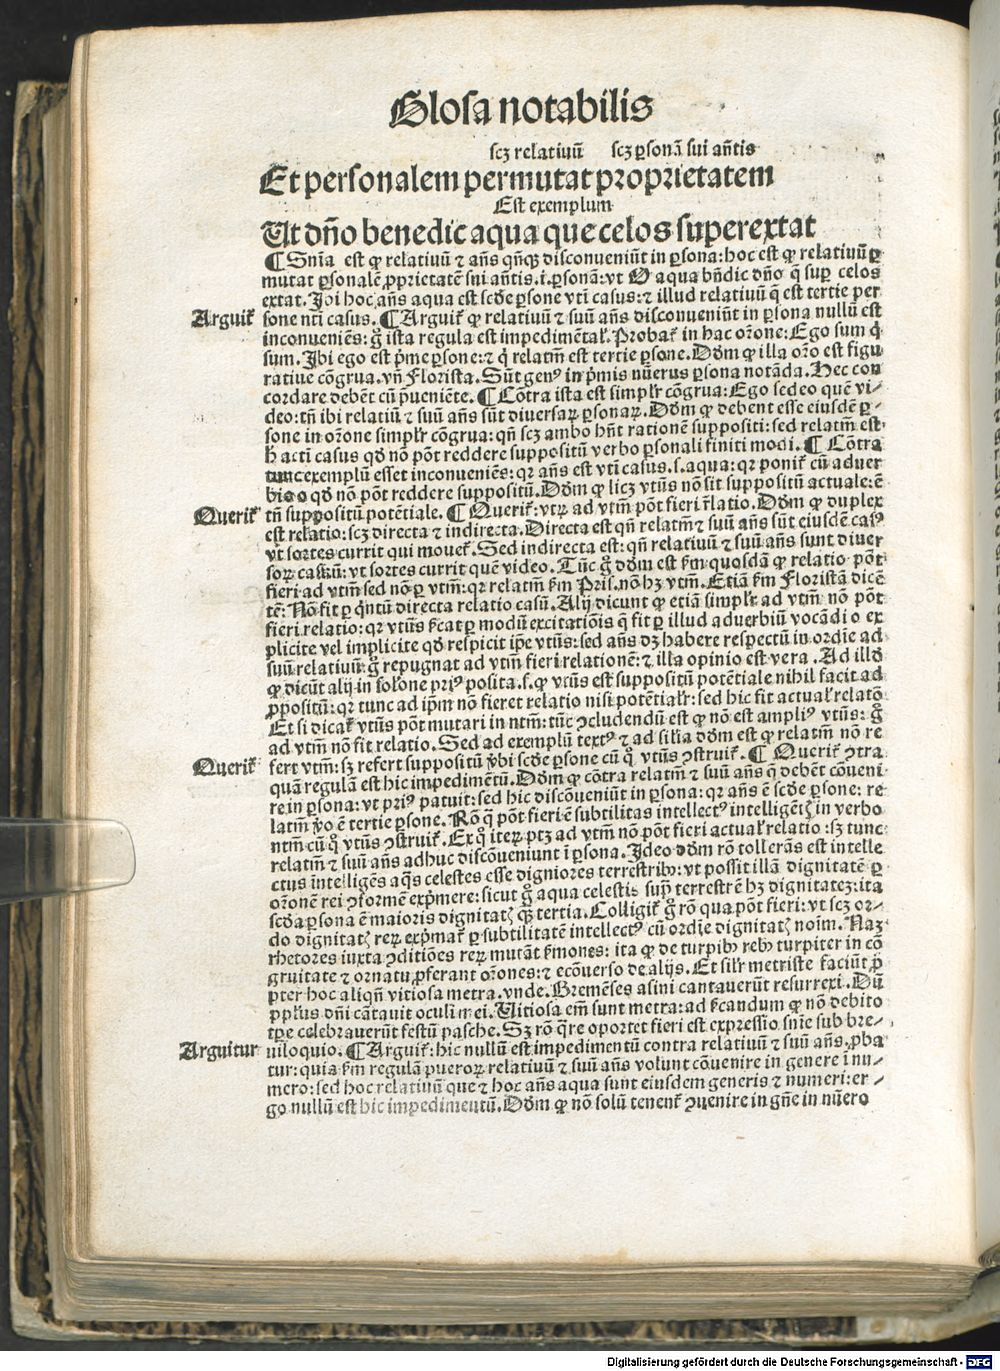 Glosa notabilis
scꝫ relatiuū scꝫ ꝑsonā sui añtis
Et personalem permutat proprietatem
Est exemplum
Ut dño benedic aqua que celos superextat
¶ Snīa est ꝙ relatiuū ⁊ añs qñqꝫ disconueniūt in ꝑsona: hoc est ꝙ relatiuū ꝑ
mutat ꝑsonalē ꝓprietatē sui añtis .i. ꝑsonā: vt O aqua bñdic dño q̄ suꝑ celos
extat. Ibi hoc añs aqua est scd̄e ꝑsone vti casus: ⁊ illud relatiuū q̄ est tertie per
Arguit᷑ sone nti casus. ¶ Arguit᷑ ꝙ relatiuū ⁊ suū añs disconueniūt in ꝑsona nullū est
inconueniēs: g̊ ista regula est impedimētal᷑. Probat᷑ in hac orōne: Ego sum q̇
sum. Ibi ego est p̄me ꝑsone: ⁊ q̇ relatm̄ est tertie ꝑsone. Dōm ꝙ illa orō est figu
ratiue cōgrua. vñ Florista. Sūt genꝰ in p̄mis nūerus ꝑsona notāda. Hec con
cordare debēt cū ꝓueniēte. ¶ Cōtra ista est simpl᷑r cōgrua: Ego sedeo quē vi⸗
deo: tñ ibi relatiū ⁊ suū añs sūt diuersaꝝ ꝑsonaꝝ. Dōm ꝙ debent esse eiusdē ꝑ⸗
sone in orōne simpl᷑r cōgrua: qñ scꝫ ambo hñt rationē suppositi: sed relatm̄ est
h̄ acti casus qd̄ nō pōt reddere suppositū verbo ꝑsonali finiti modi. ¶ Cōtra
tunc exemplū esset inconueniēs: qꝛ añs est vti casus .s. aqua: qꝛ ponit᷑ cū aduer
bio o qd̄ nō pōt reddere suppositū. Dōm ꝙ licꝫ vtūs nō sit suppositū actuale: ē
Querit᷑ tñ suppositū potētiale. ¶ Querit᷑: vtꝝ ad vtm̄ pōt fieri r̄latio. Dōm ꝙ duplex
est relatio: scꝫ directa ⁊ indirecta. Directa est qñ relatm̄ ⁊ suū añs sūt eiusdē casꝰ
vt sortes currit qui mouet᷑. Sed indirecta est: qñ relatiuū ⁊ suū añs sunt diuer
soꝝ casuū: vt sortes currit quē video. Tūc g̊ dōm est ẜm quosdā ꝙ relatio pōt
fieri ad vtm̄ sed nō ꝑ vtm̄: qꝛ relatm̄ ẜm Pris. nō hꝫ vtm̄. Etiā ẜm Floristā dicē
tē: Nō fit ꝑ q̇ntū directa relatio casū. Alij dicunt ꝙ etiā simpl᷑r ad vtm̄ nō pōt
fieri relatio: qꝛ vtūs ẜcat ꝑ modū excitatiōis q̄ fit ꝑ illud aduerbiū vocādi o ex
plicite vel implicite qd̄ respicit ip̄e vtūs: sed añs dꝫ habere respectū in ordie ad
suū relatiuū: g̊ repugnat ad vtm̄ fieri relationē: ⁊ illa opinio est vera. Ad illd̄
ꝙ dicūt alij in solōne priꝰ posita .s. ꝙ vtūs est suppositū potētiale nihil facit ad
ꝓpositū: qꝛ tunc ad ip̄m nō fieret relatio nisi potētial᷑r: sed hic fit actual᷑ relatō
Et si dicat᷑ vtūs pōt mutari in ntm̄: tūc ꝯcludendū est ꝙ nō est ampliꝰ vtūs: g̊
ad vtm̄ nō fit relatio. Sed ad exemplū textꝰ ⁊ ad silia dōm est ꝙ relatm̄ nō re
Querit᷑ fert vtm̄: sꝫ refert suppositū v̄bi scd̄e ꝑsone cū q̊ vtūs ꝯstruit᷑. ¶ Querit᷑ ꝯtra
quā regulā est hic impedimētū. Dōm ꝙ cōtra relatm̄ ⁊ suū añs q̄ debēt cōueni
re in ꝑsona: vt priꝰ patuit: sed hic discōueniūt in ꝑsona: qꝛ añs ē scd̄e ꝑsone: re
latm̄ v̄o ē tertie ꝑsone. Rō q̄ pōt fieri ē subtilitas intellectꝰ intelligētꝭ in verbo
ntm̄ cū q̊ vtūs ꝯstruit᷑. Ex q̊ iteꝝ ptꝫ ad vtm̄ nō pōt fieri actual᷑ relatio: sꝫ tunc
relatm̄ ⁊ suū añs adhuc discōueniunt ī ꝑsona. Ideo dōm rō tollerās est intelle
ctus intelligēs aq̄s celestes esse digniores terrestribꝰ: vt possit illā dignitatē ꝑ
orōnē rei ꝯformē exp̄mere: sicut g̊ aqua celestis suꝑ terrestrē hꝫ dignitatez: ita
scd̄a ꝑsona ē maioris dignitatꝭ qꝫ tertia. Colligit᷑ g̊ rō qua pōt fieri: vt scꝫ or⸗
do dignitatꝭ reꝝ exp̄mat᷑ ꝑ subtilitatē intellectꝰ cū ordie dignitatꝭ noīm. Naꝫ
rhetores iuxta ꝯditiōes reꝝ mutāt ẜmones: ita ꝙ de turpibꝰ rebꝰ turpiter in cō
gruitate ⁊ ornatu ꝓferant orōnes: ⁊ ecōuerso de alijs. Et sil᷑r metriste faciūt ꝓ
pter hoc aliqñ vitiosa metra. vnde. Bremēses asini cantauerūt resurrexi. Dū
pp̄lus dñi cātauit oculi mei. Uitiosa em̄ sunt metra: ad ẜcandum ꝙ nō debito
tꝑe celebrauerūt festū pasche. Sꝫ rō q̄re oportet fieri est expressio snīe sub bre⸗
Arguitur uiloquio. ¶ Arguit᷑: hic nullū est impedimentū contra relatiuū ⁊ suū añs. ꝓba
tur: quia ẜm regulā pueroꝝ relatiuū ⁊ suū añs volunt cōuenire in genere ī nu⸗
mero: sed hoc relatiuū que ⁊ hoc añs aqua sunt eiusdem generis ⁊ numeri: er⸗
go nullū est hic impedimentū. Dōm ꝙ nō solū tenent᷑ ꝯuenire in gñe in nūero